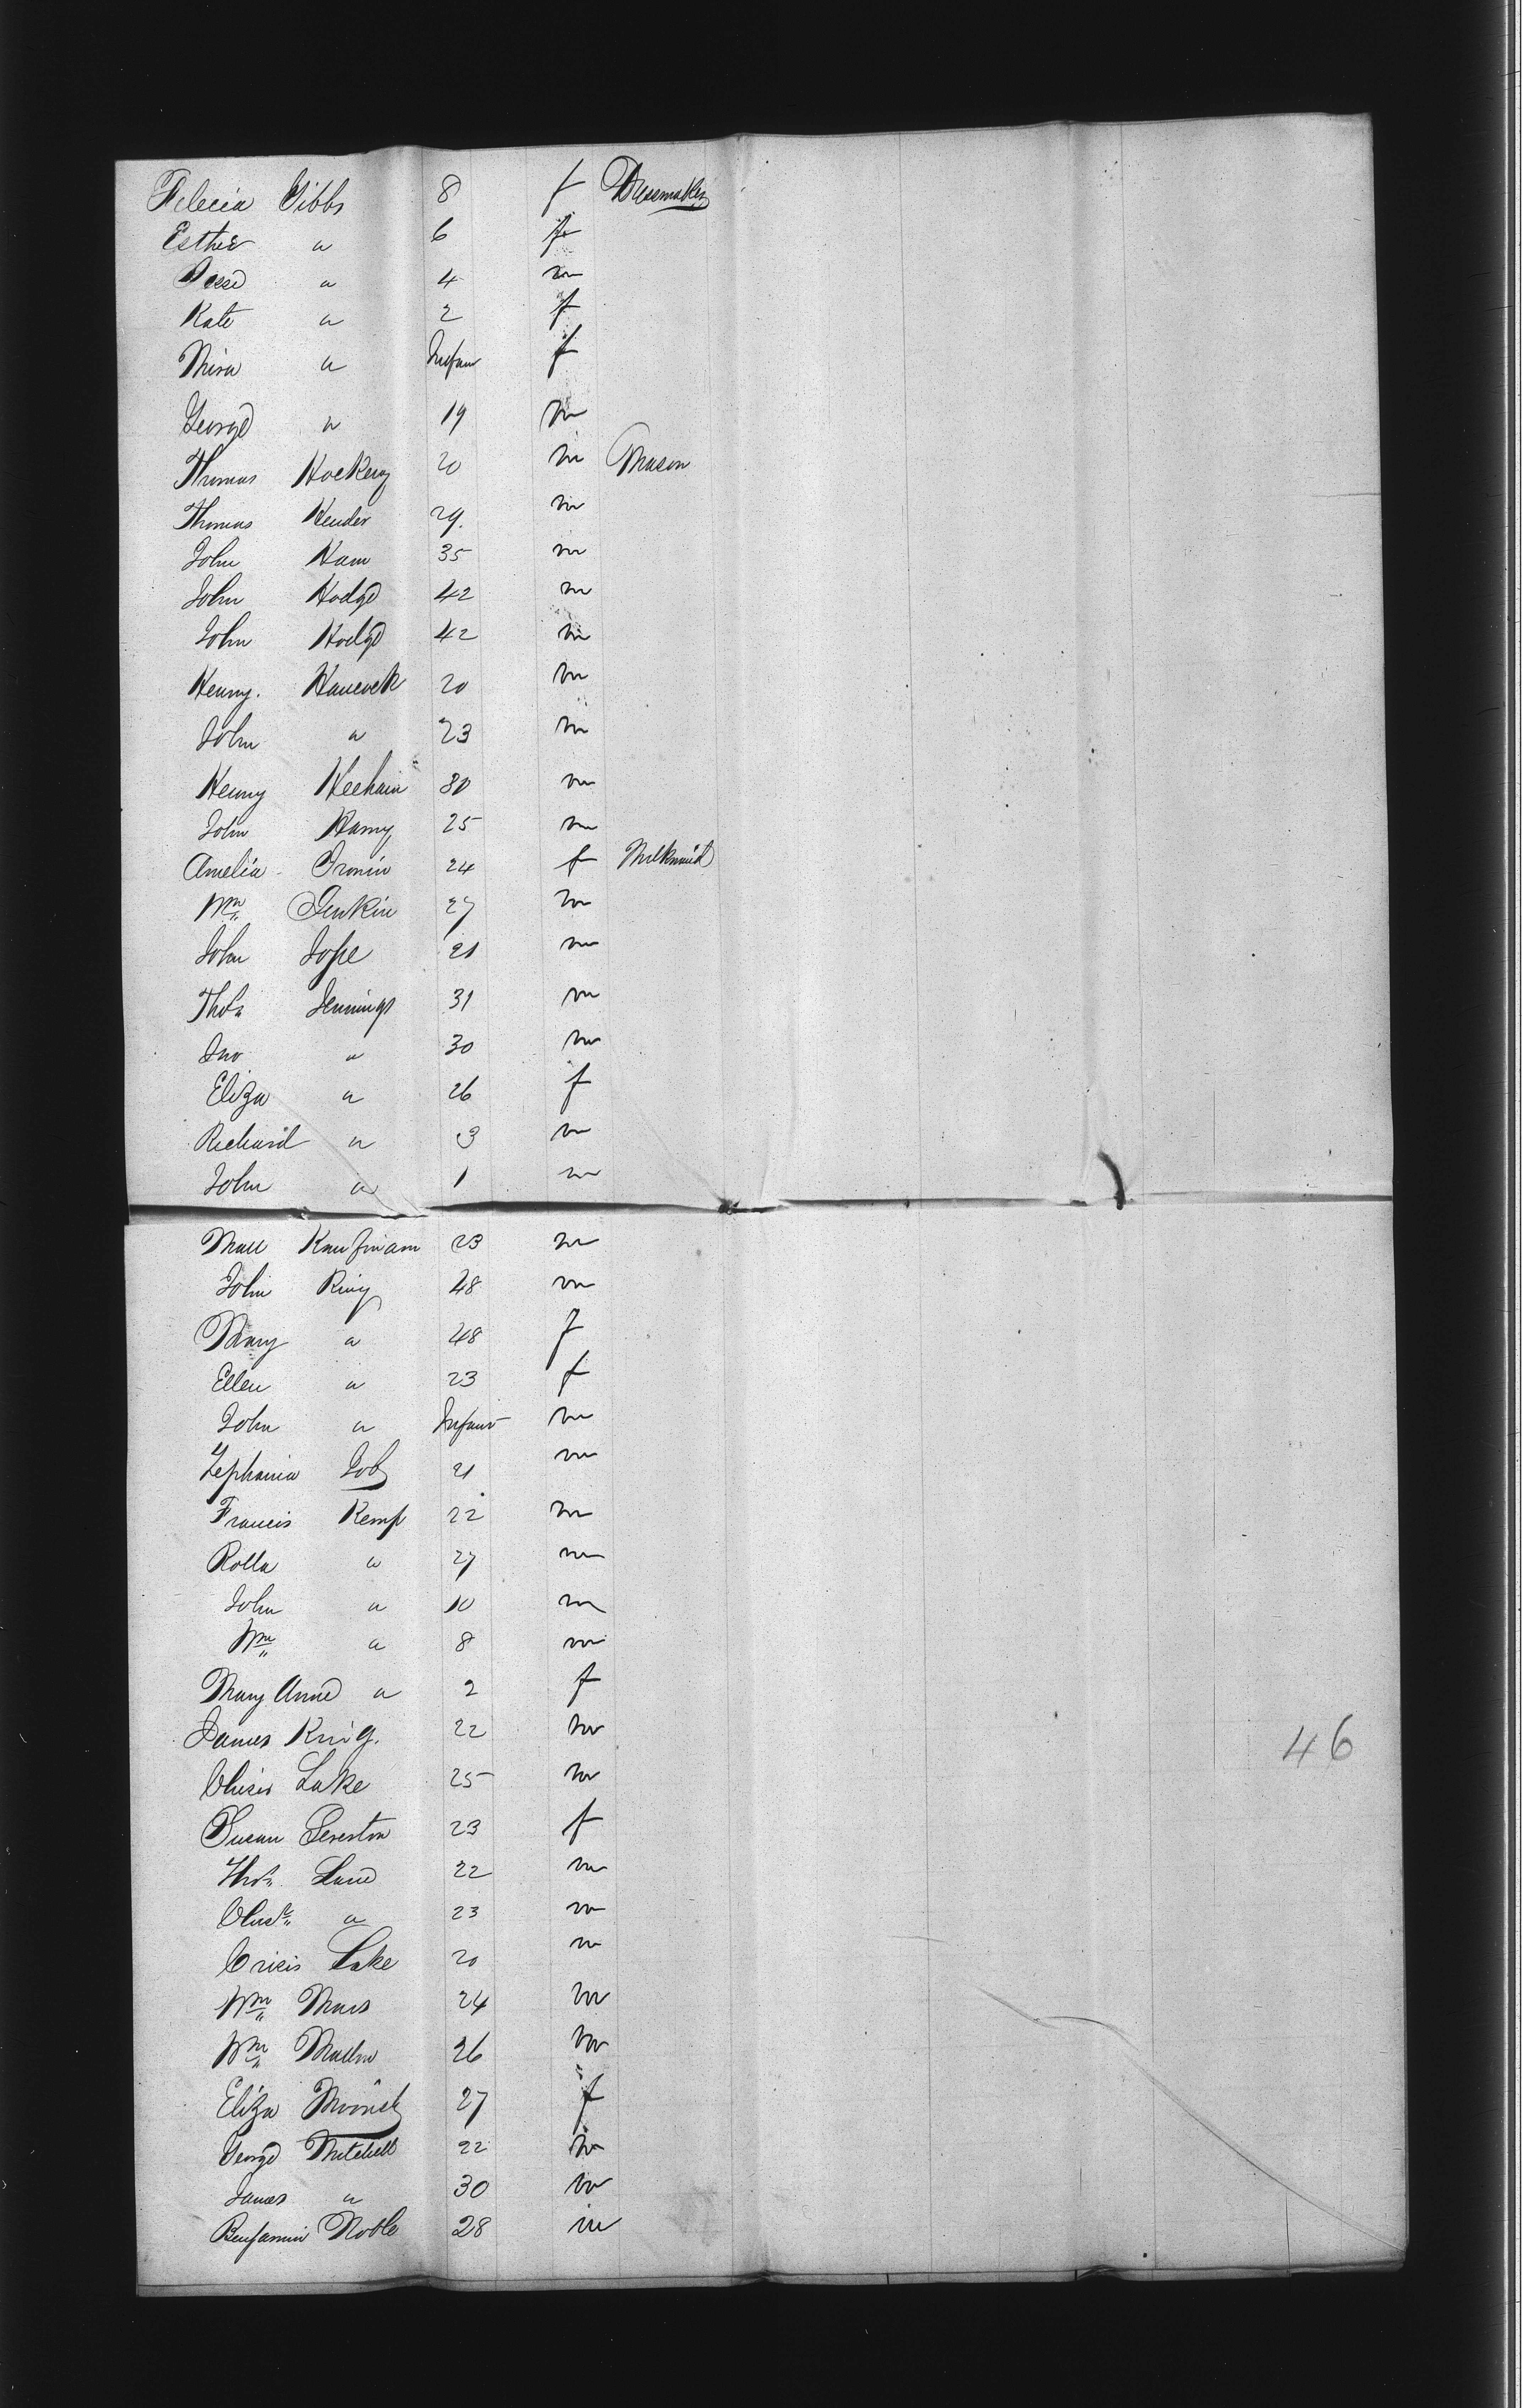 Felecia Gibbs 8 f Dressmaker
Esther " 6 f
Jesse " 4 m
Kate " 2 f
Mira " Infant f
George " 19 m
Thomas Hocking 20 m Mason
Thomas Hender 29. m
John Ham 35 m
John Hodge 42 m
John Hodge 42 m
Henry. Hancock 20 m
John " 23 m
Henry 30 m
John Harry 25 m
Amelia Ironin 24 f Milkmaid
Wm Jenkin 27 m
John Jope 21 m
Thos Jennings 31 m
Jno " 30 m
Eliza " 26 f
Richard " 3 m
John " 1 m
Kaufmann 23 m
John King 48 m
Mary " 48 f
Ellen " 23 f
John " Infant m
Zephania Job 21 m
Francis Kemp 22 m
Rolla " 27 m
John " 10 m
Wm " 8 m
Mary Anne " 2 f
James King. 22 m
Lake 25 m
Susan 23 f
Thos. 22 m
" 23 m
Lake 20 m
Wm 24 m
Wm 26 m
Eliza 27 f
George Mitchell 22 m
James " 30 m
Benjamin Noble 28 m
46